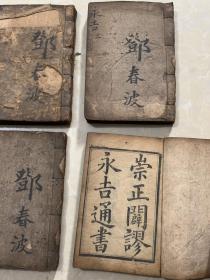 鄧春波
永吉
鄧春波
鄧春波
崇正闢謬
永吉通書